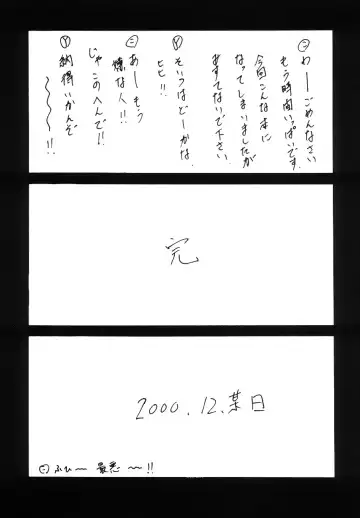 ㊁わーごめんなさい
もう時間いっぱいです
今回こんな本に
なってしまいましたが
みすてないで下さい
Ⓨそいつはどーかな
ヒヒ!!
㊁あーもう
嫌な人!!
じゃこのへんで!!
Ⓨ納得いかんぞ
～～～!!
完
2000.12.某日
㊁ふひ〜 最悪 〜!!